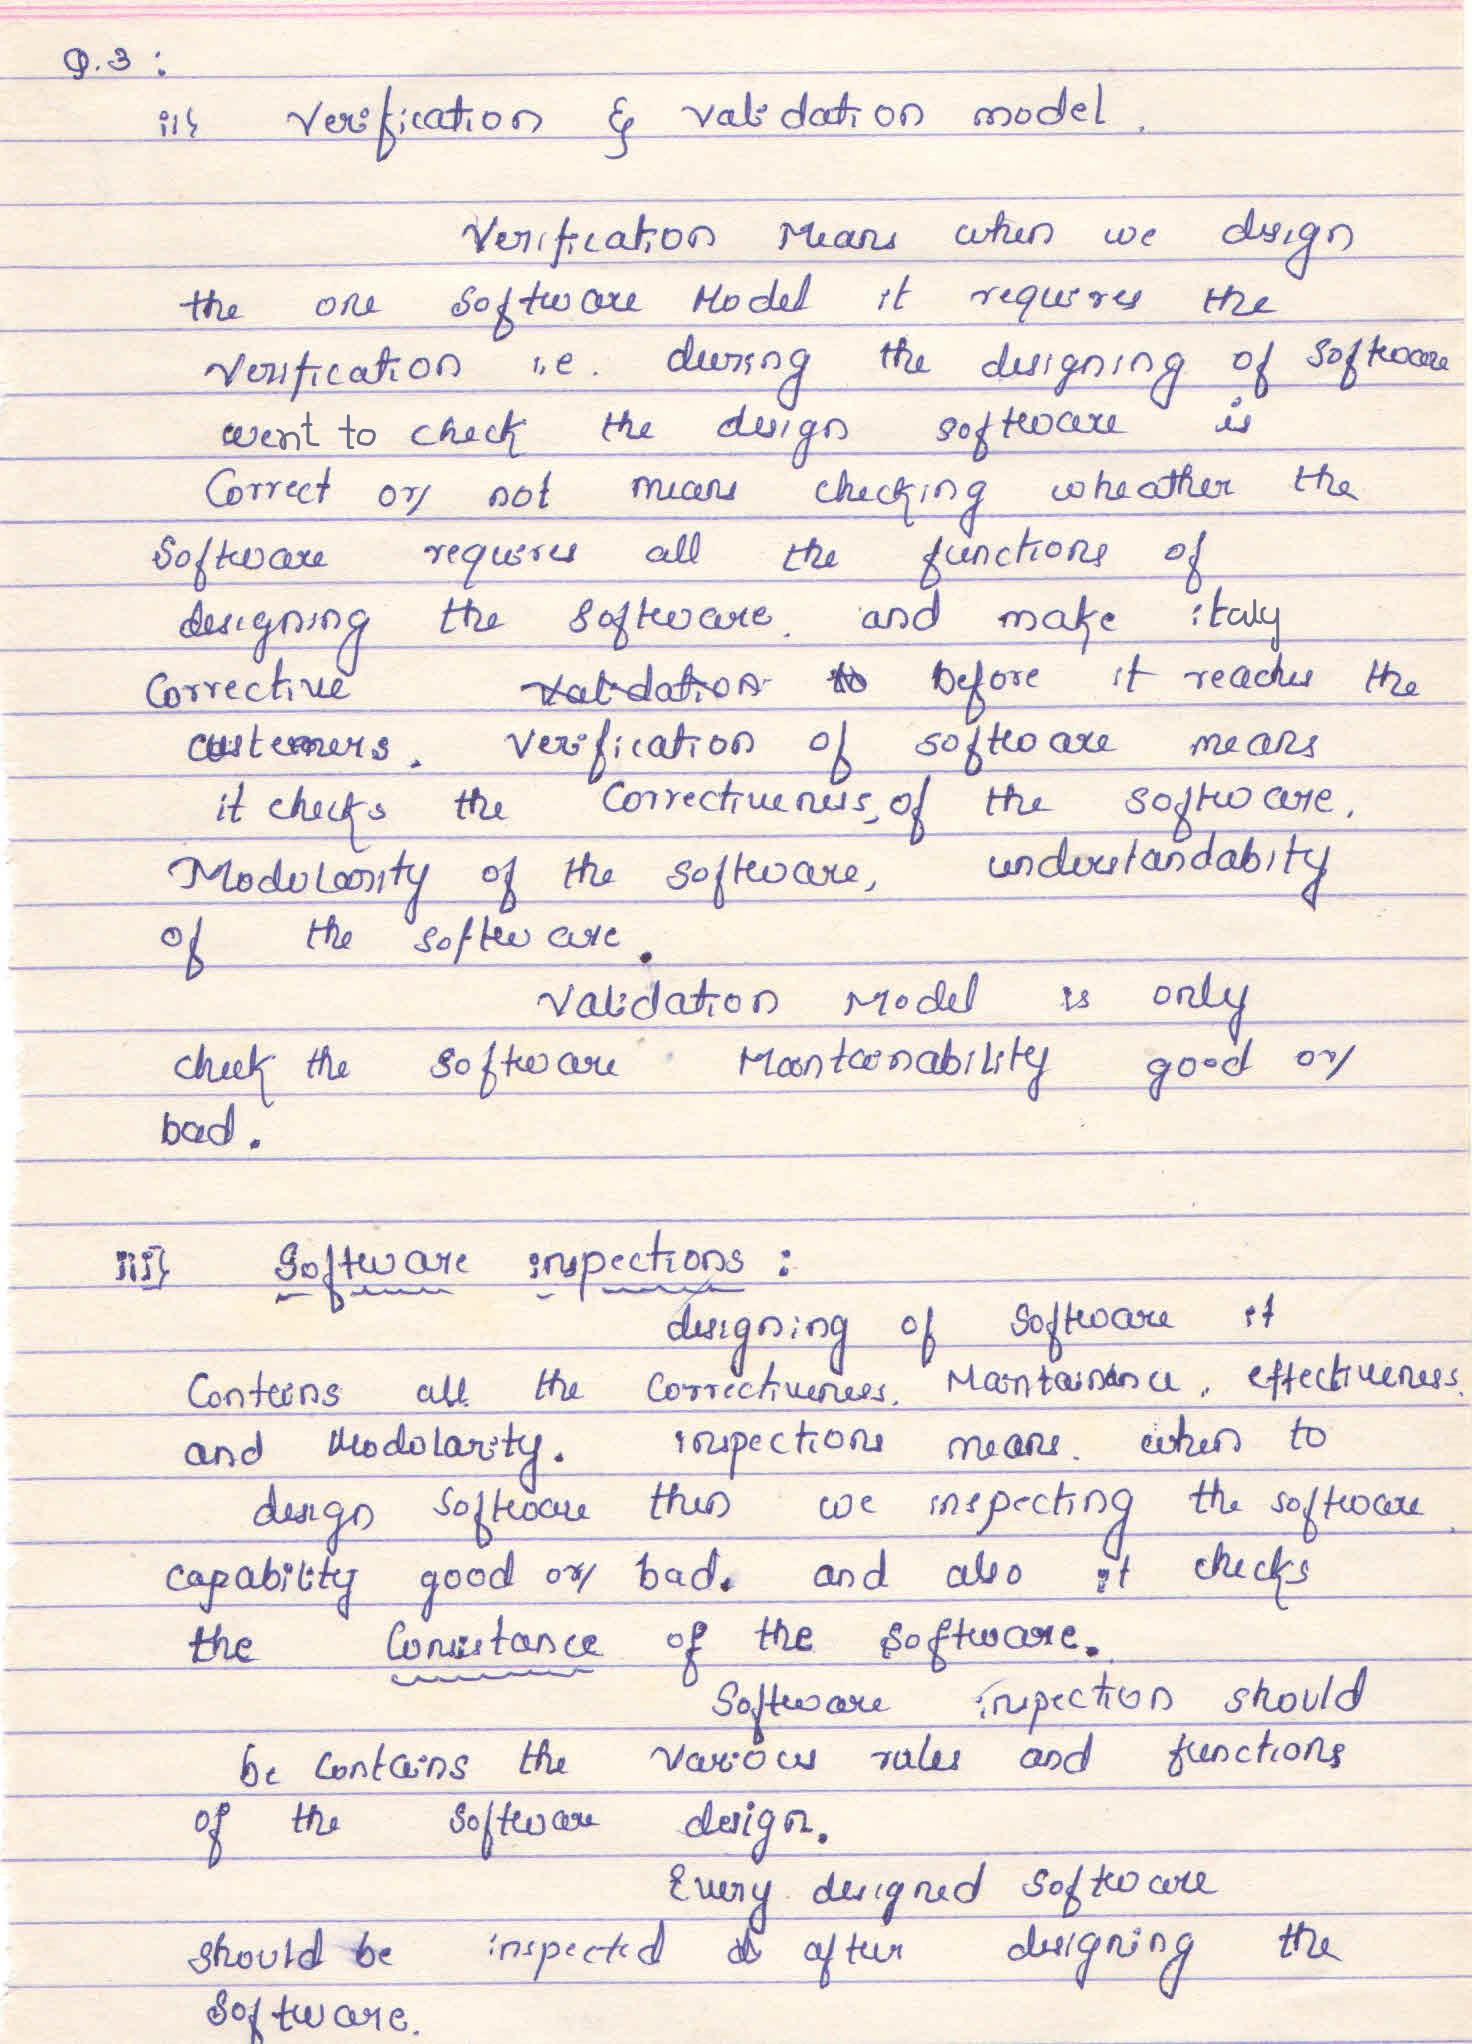 Q.3 :
ii} Verification & Validation model.
Verification Means when we design
the one Software Model it requires the
Verification i.e. during the designing of Software
went to check the design software is
Correct or not means checking wheather the
Software requires all the functions of
designing the software. and make italy
Corrective Validation to before it reaches the
customers. Verification of software means
it checks the Correctiveness, of the software.
Modularity of the software, understandabity
of the software.
Validation Model is only
check the software Maintainability good or
bad.
iii} Software inspections :
designing of Software it
Contains all the Correctiveness. Maintainance, effectiveness.
and Modularity. inspections means. when to
design software then we inspecting the software
capability good or bad. and also it checks
the Consistance of the software.
Software inspection should
be contains the various rules and functions
of the software design.
Every designed software
should be inspected after designing the
Software.